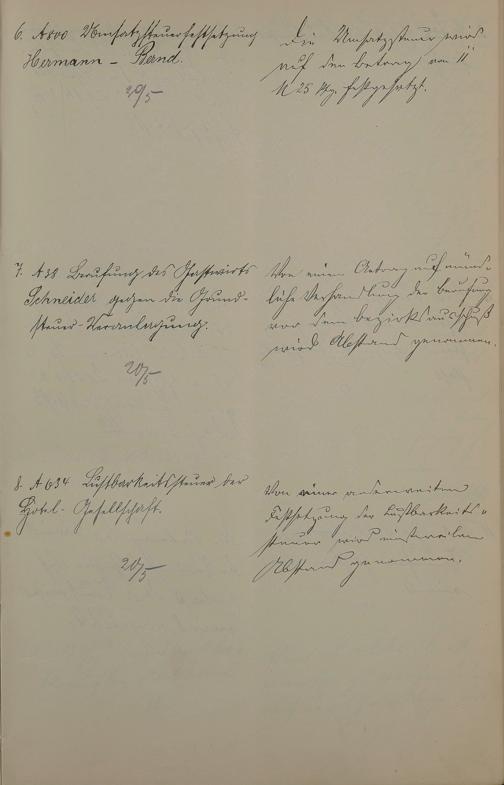 6. A 800 Umsatzsteuerfestsetzung
Hermann - Bend.
20/5
Die Umsatzsteuer wird
auf den Betrag von 11
M 25 Pfg. festgesetzt.
7. A 38 Berufung des Gastwirts
Schneider gegen die Grund-
steuer-Veranlagung.
20/5
Von einem Antrag auf münd-
liche Verhandlung der Berufung
vor dem Bezirksausschuß
wird Abstand genommen.
8. A 634 Lustbarkeitssteuer der
Hotel-Gesellschaft.
20/5
Von einer anderweiten
Festsetzung der Lustbarkeits-
steuer wird einstweilen
Abstand genommen.